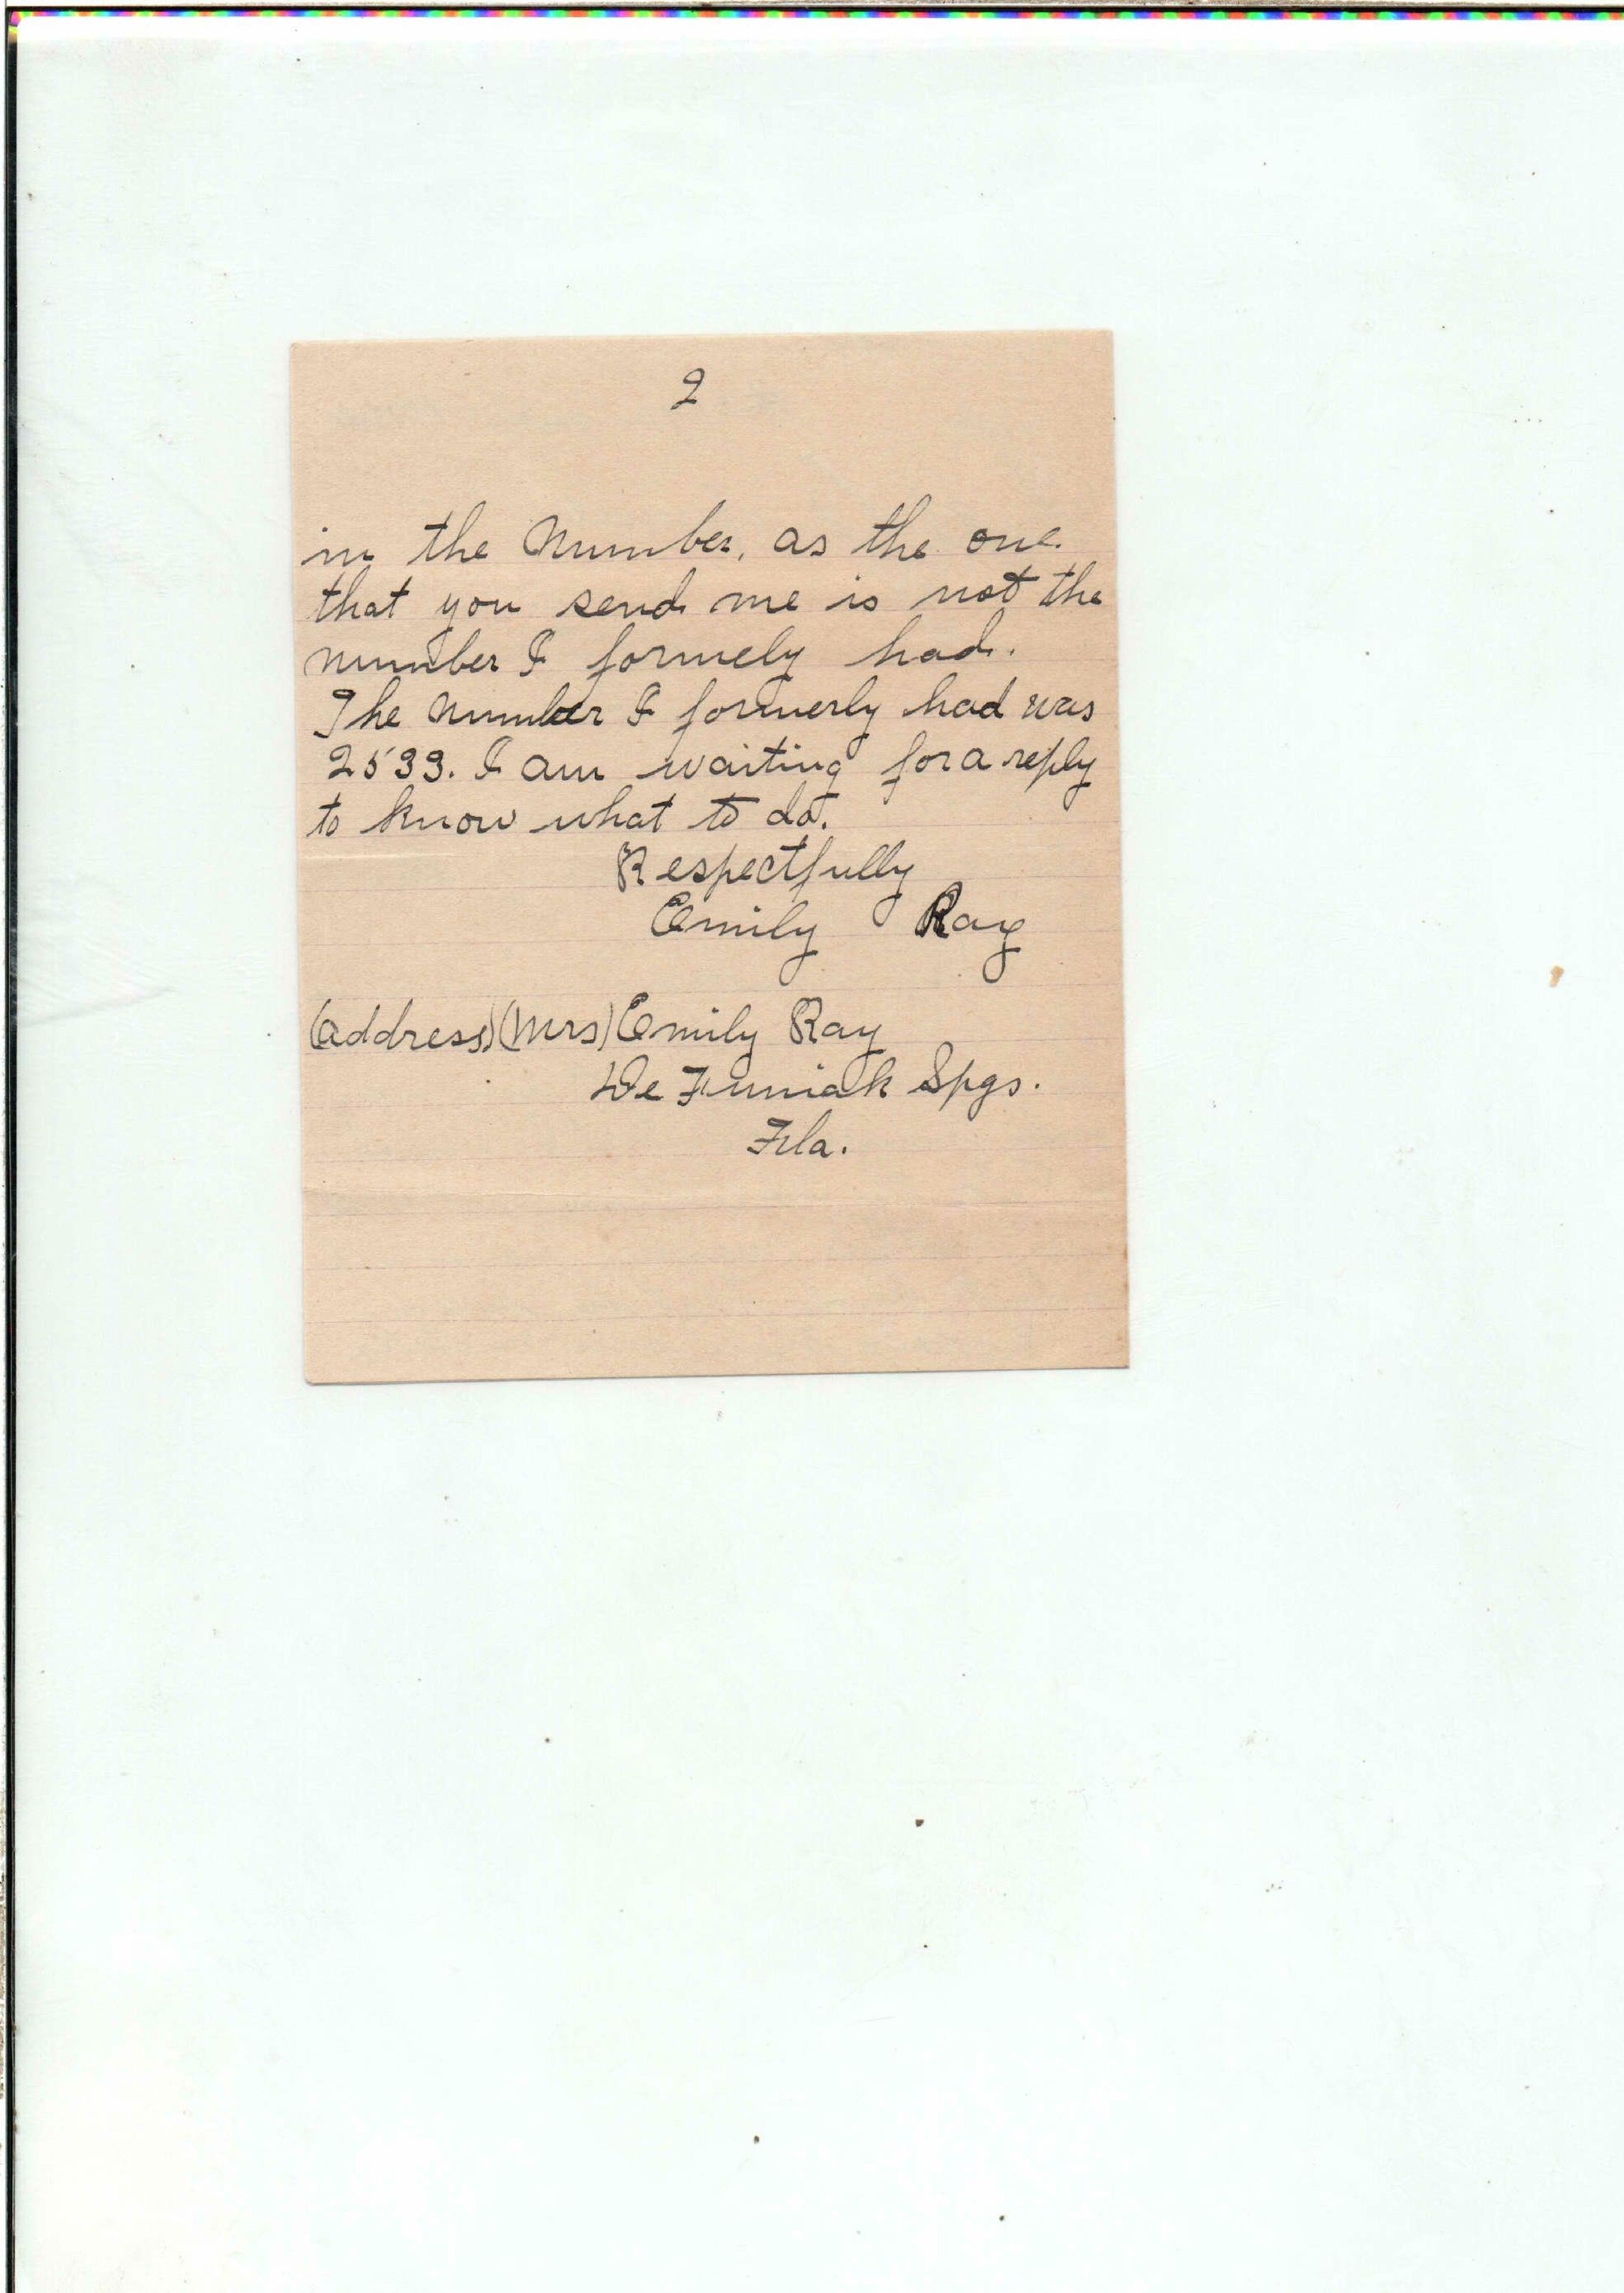 2
in the Number, as the one
that you send me is not the
number I formely had.
The Number I formerly had was
2533. I am waiting for a reply
to know what to do.
Respectfully
Emily Ray
(address) (Mrs) Emily Ray
De Funiak Spgs.
Fla.